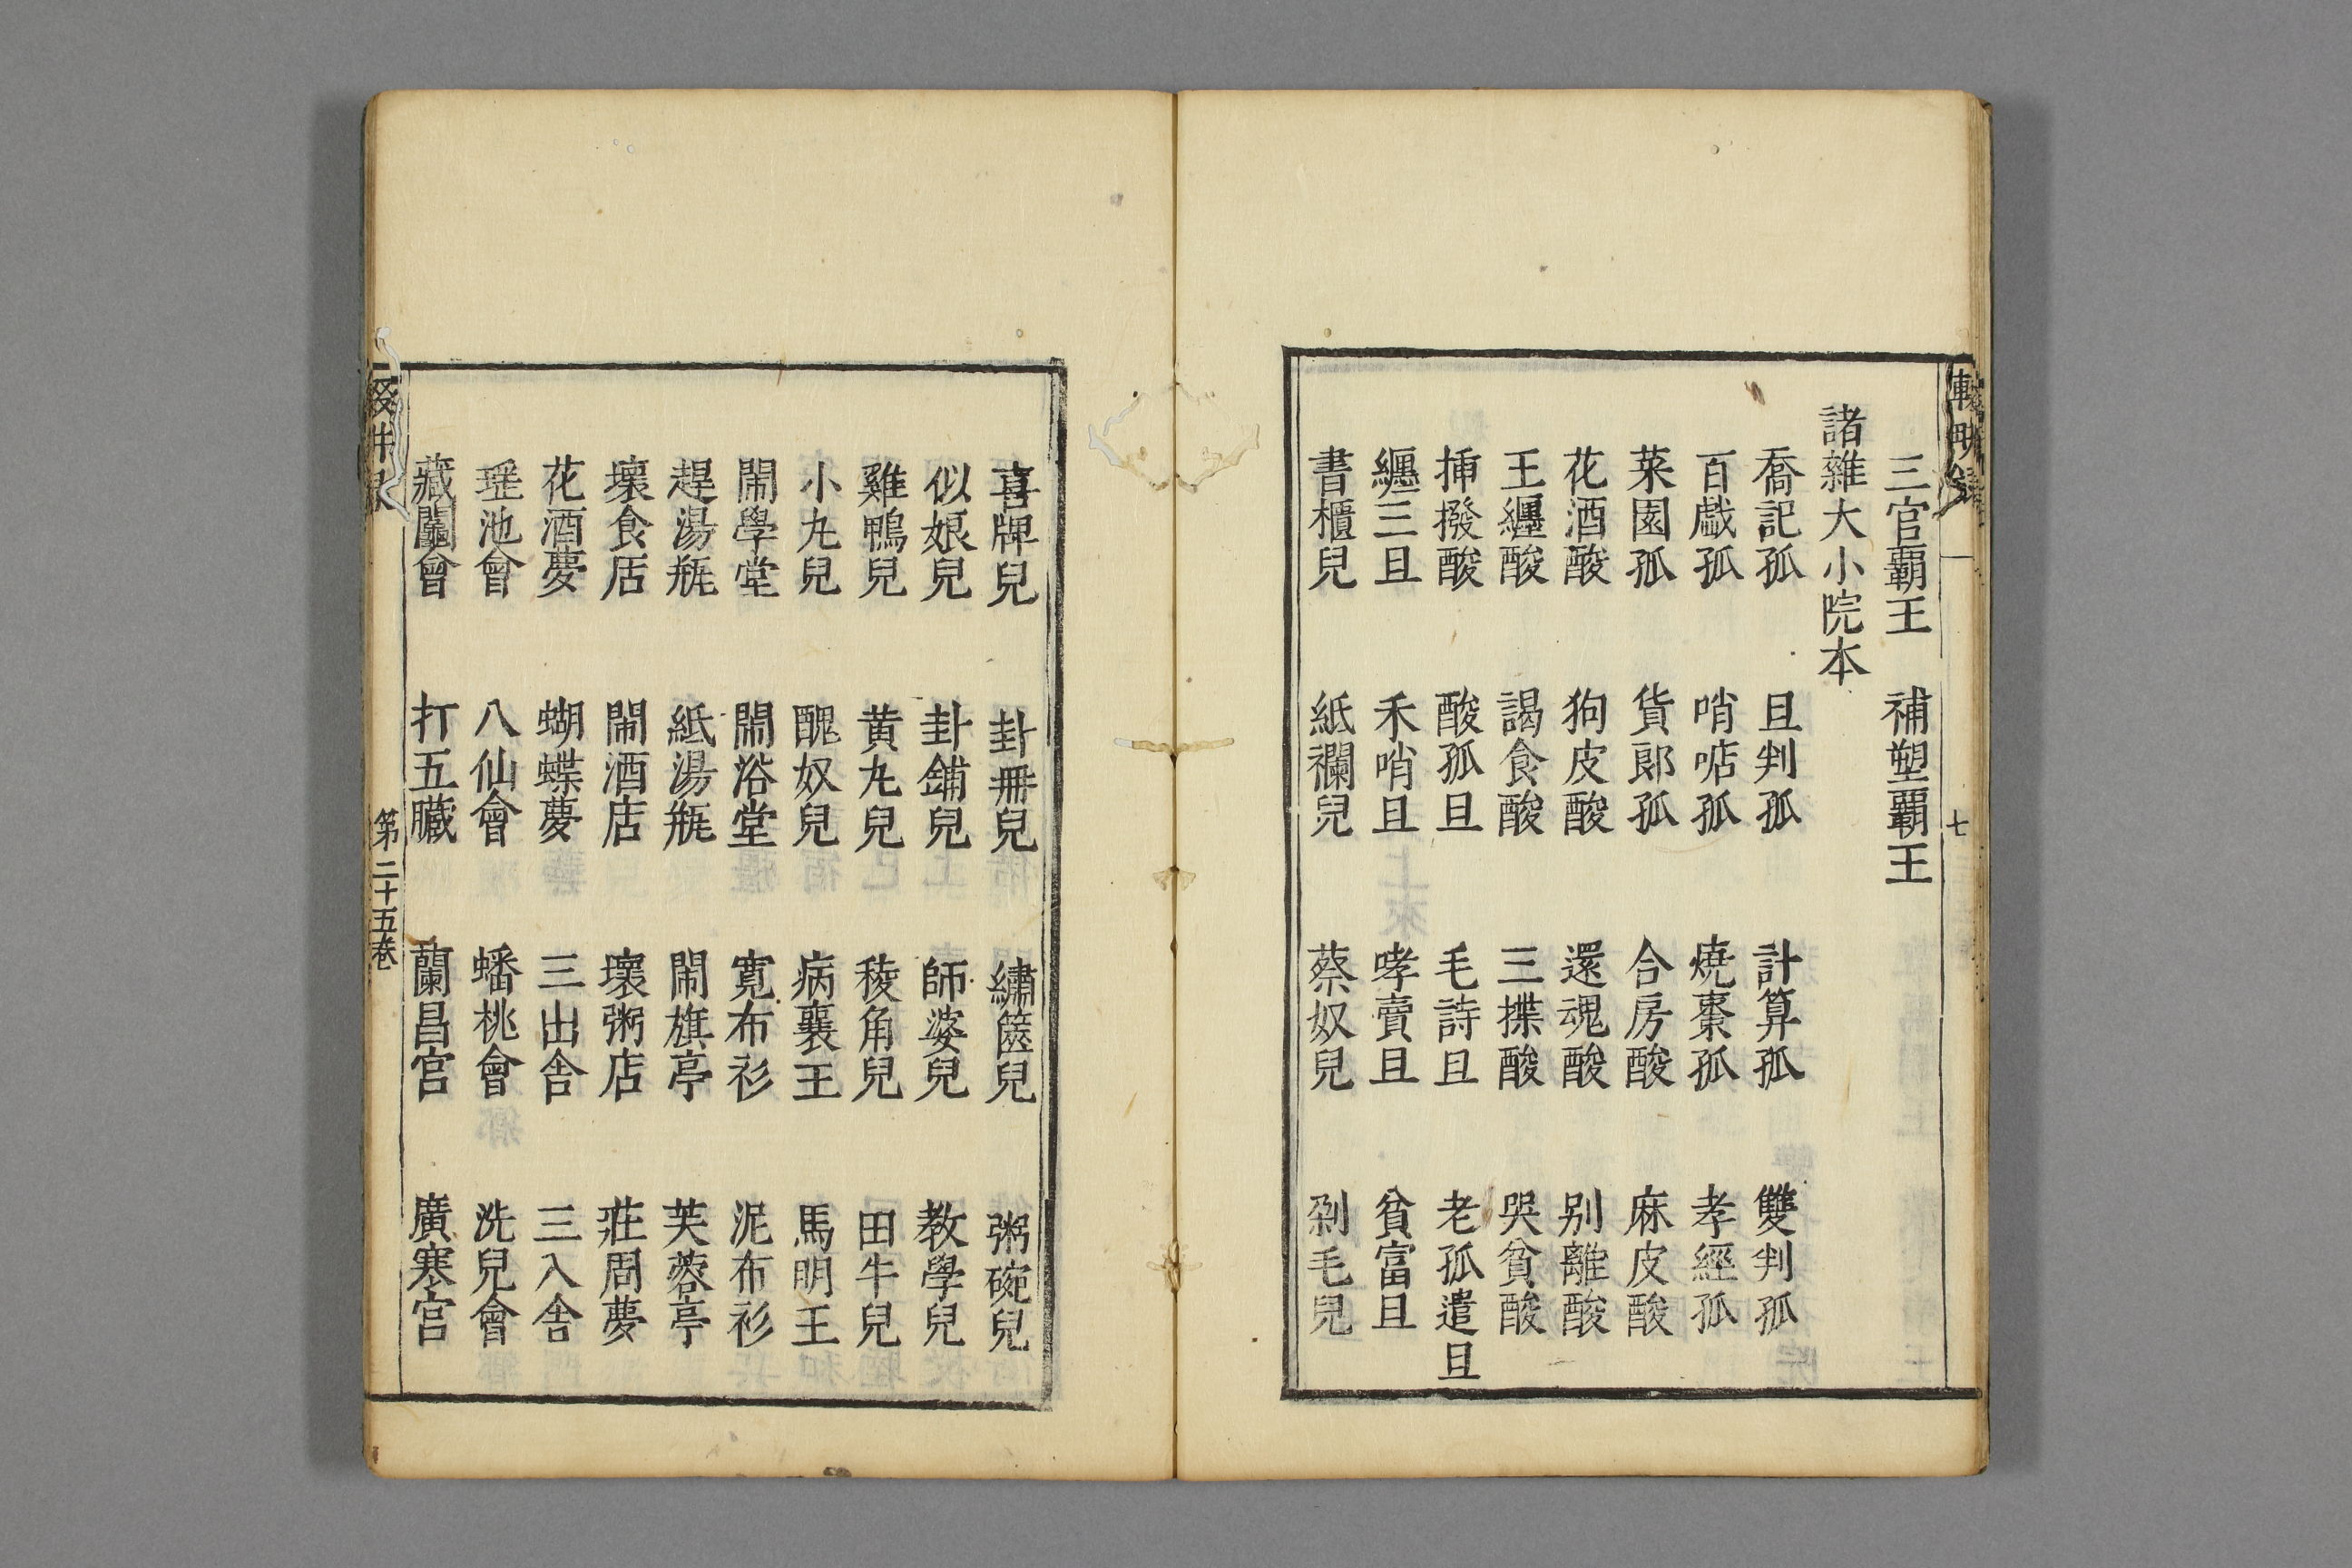 三官霸王　補塑霸王
諸雜大小院本
喬記孤　旦判孤　計算孤　雙判孤
百戲孤　哨啽孤　燒棗孤　孝經孤
菜園孤　貨郎孤　合房酸　麻皮酸
花酒酸　狗皮酸　還魂酸　别離酸
王纏酸　謁食酸　三揲酸　哭貧酸
揷撥酸　酸孤旦　毛詩旦　老孤遣旦
纒三旦　禾哨旦　哮賣旦　貧富旦
書櫃兒　紙襴兒　蔡奴兒　剁毛兒
喜牌兒　卦冊兒　繡篋兒　粥碗兒
似娘兒　卦鋪兒　師婆兒　教學兒
雞鴨兒　黄丸兒　稜角兒　田牛兒
小丸兒　醜奴兒　病襄王　馬明王
閙學堂　閙浴堂　寛布衫　泥布衫
趕湯瓶　紙湯瓶　閙旗亭　芙蓉亭
壞食店　閙酒店　壞粥店　莊周夢
花酒夢　蝴蝶夢　三出舎　三入舎
瑶池會　八仙會　蟠桃會　洗兒會
藏鬮會　打五臟　蘭昌宫　廣寒宫
第二十五卷
七